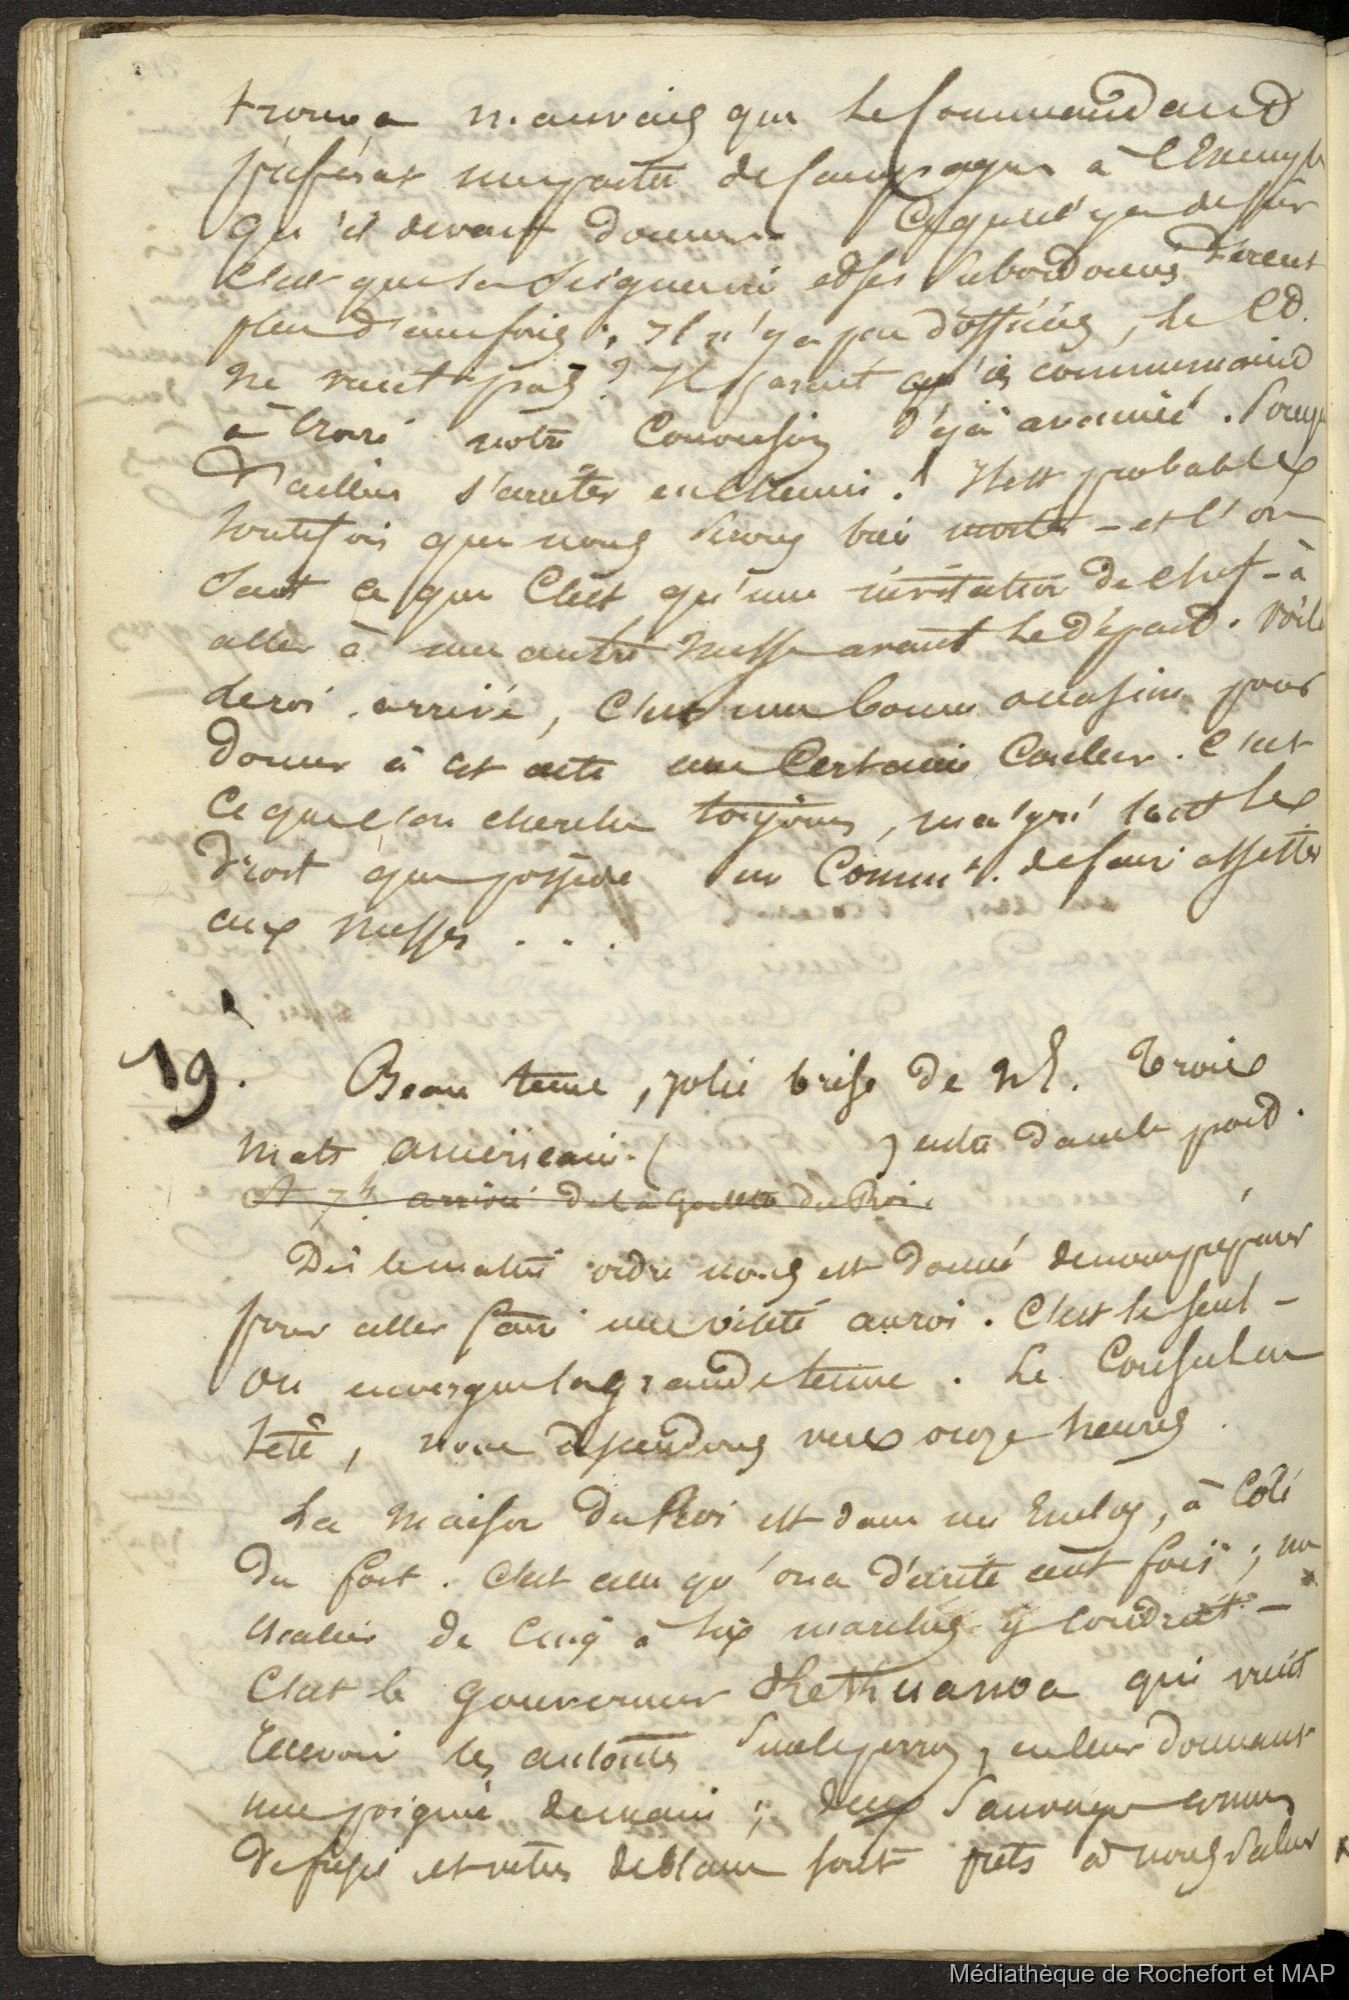 trouva mauvais que le Commandand
préférat une partie de Campagne à l'Exemple
qu'il devait donner. Ce qu'il y a de sûr
c'est que le Seigneur et ses subordonnés dirent
plus d'une fois : Il n'y a pas d'officiers, le Cd.
ne vient pas ? Il parait qu'ils commencaient
à croire notre Conversion déjà avancée. Pourquoi
D'ailleurs s'arrêter en chemin ! Il est probable
toutefois que nous serons bien notés - et l'on
sait ce que c'est qu'une invitation de chef - à
aller à une autre messe avant le départ. Voilà
le roi arrivé, c'est une bonne occasion pour
donner à cet acte une Certaine Couleur. C'est
ce que l'on cherche toujours, malgré tout le
droit que possède un Commt. de faire assister
aux messes . . .
19. Beau tems, jolie brise de NE. Trois
mats américain ( ) entre dans le port.
A 7h. arrivée de la Goelette du Roi.
Dès le matin ordre nous est donné de nous préparer
pour aller faire une visite au roi. C'est le seul -
on envergue la grande tenue. Le Consul en
tête, nous descendons vers onze heures.
La maison du Roi est dans un Enclos, à Côté
du fort. C'est celle qu'on a décrite cent fois ; un
escalier de Cinq à six marches y conduit -
C'est le gouverneur Kekuanoa qui vient
recevoir les autorités sur le perron, en leur donnant
une poignée de main ; deux Sauvages armés
de fusils et vêtus de blanc sont prêts à nous saluer
Médiathèque de Rochefort et MAP